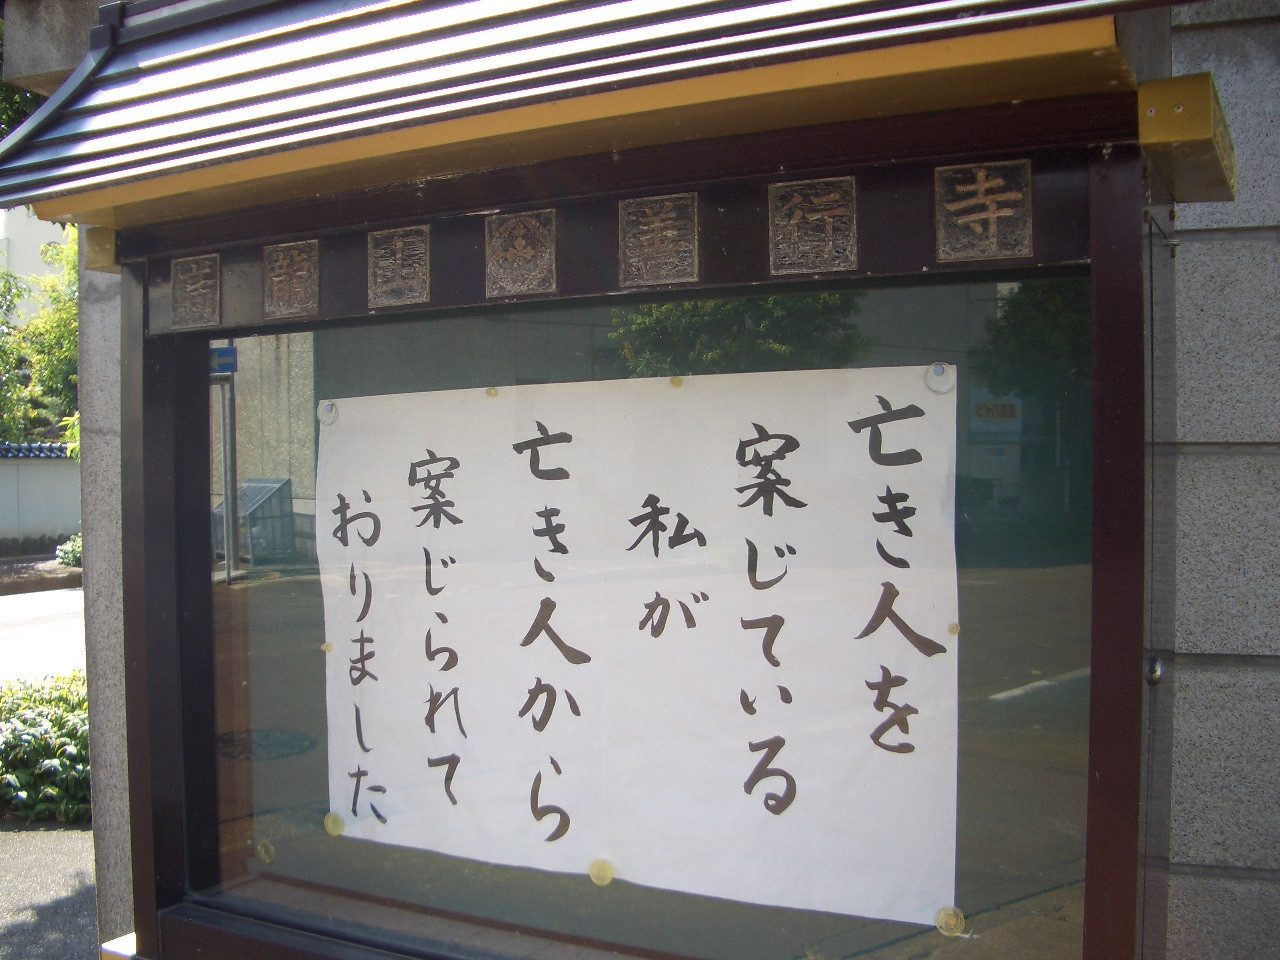 龍山
善行寺
亡き人を
案じている
私が
亡き人から
案じられて
おりました